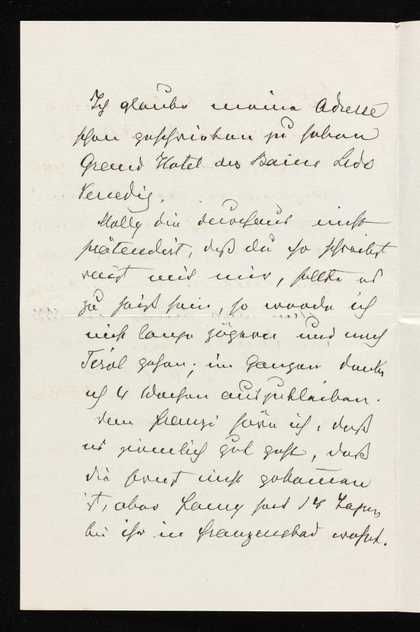 Ich glaube meine Adresse
schon geschrieben zu haben
Grand Hotel des Bains Lido
Venedig.
Molly die durchaus nicht
prätendirt, daß du ihr schreibst
reist mit mir, sollte es
zu heiß sein, so werde ich
nicht lange zögern und nach
Tirol gehen; im Ganzen denke
ich 4 Wochen auszubleiben.
höre ich, daß
es ziemlich gut geht, daß
die nicht gekommen
ist, aber Fanny seit 14 Tagen
bei ihr in Franzensbad wohnt.